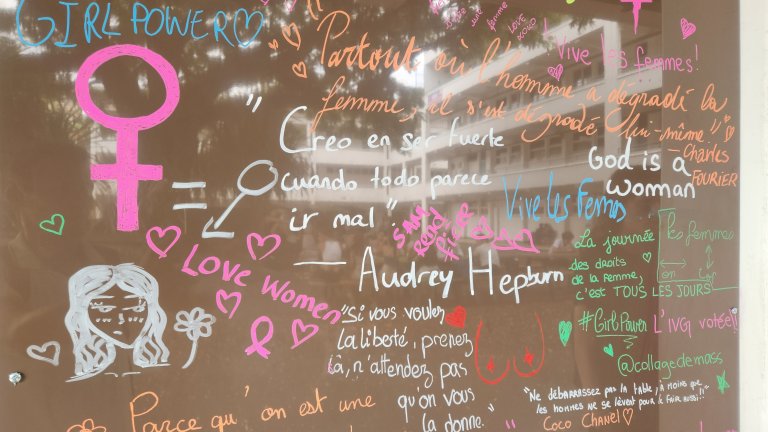 GIRL POWER
une
femme
LOVE
Vive les femmes!
Partout où l'homme a dégradé la
femme, il s'est dégradé lui-même"
— Charles
FOURIER
" Creo en ser fuerte
cuando todo parece
ir mal"
— Audrey Hepburn
God is a
woman
Vive les Femmes
=
Love Women
La journée
des droits
de la Femme,
c'est TOUS LES JOURS
les femmes
on
#GirlPower
L'IVG votée!!
@collagedemass
"Si vous voulez
la liberté, prenez
là, n'attendez pas
qu'on vous
la donne."
"Ne débarrassez pas la table, à moins que
les hommes ne se lèvent pour le faire aussi!!"
Coco Chanel
Parce qu'on est une